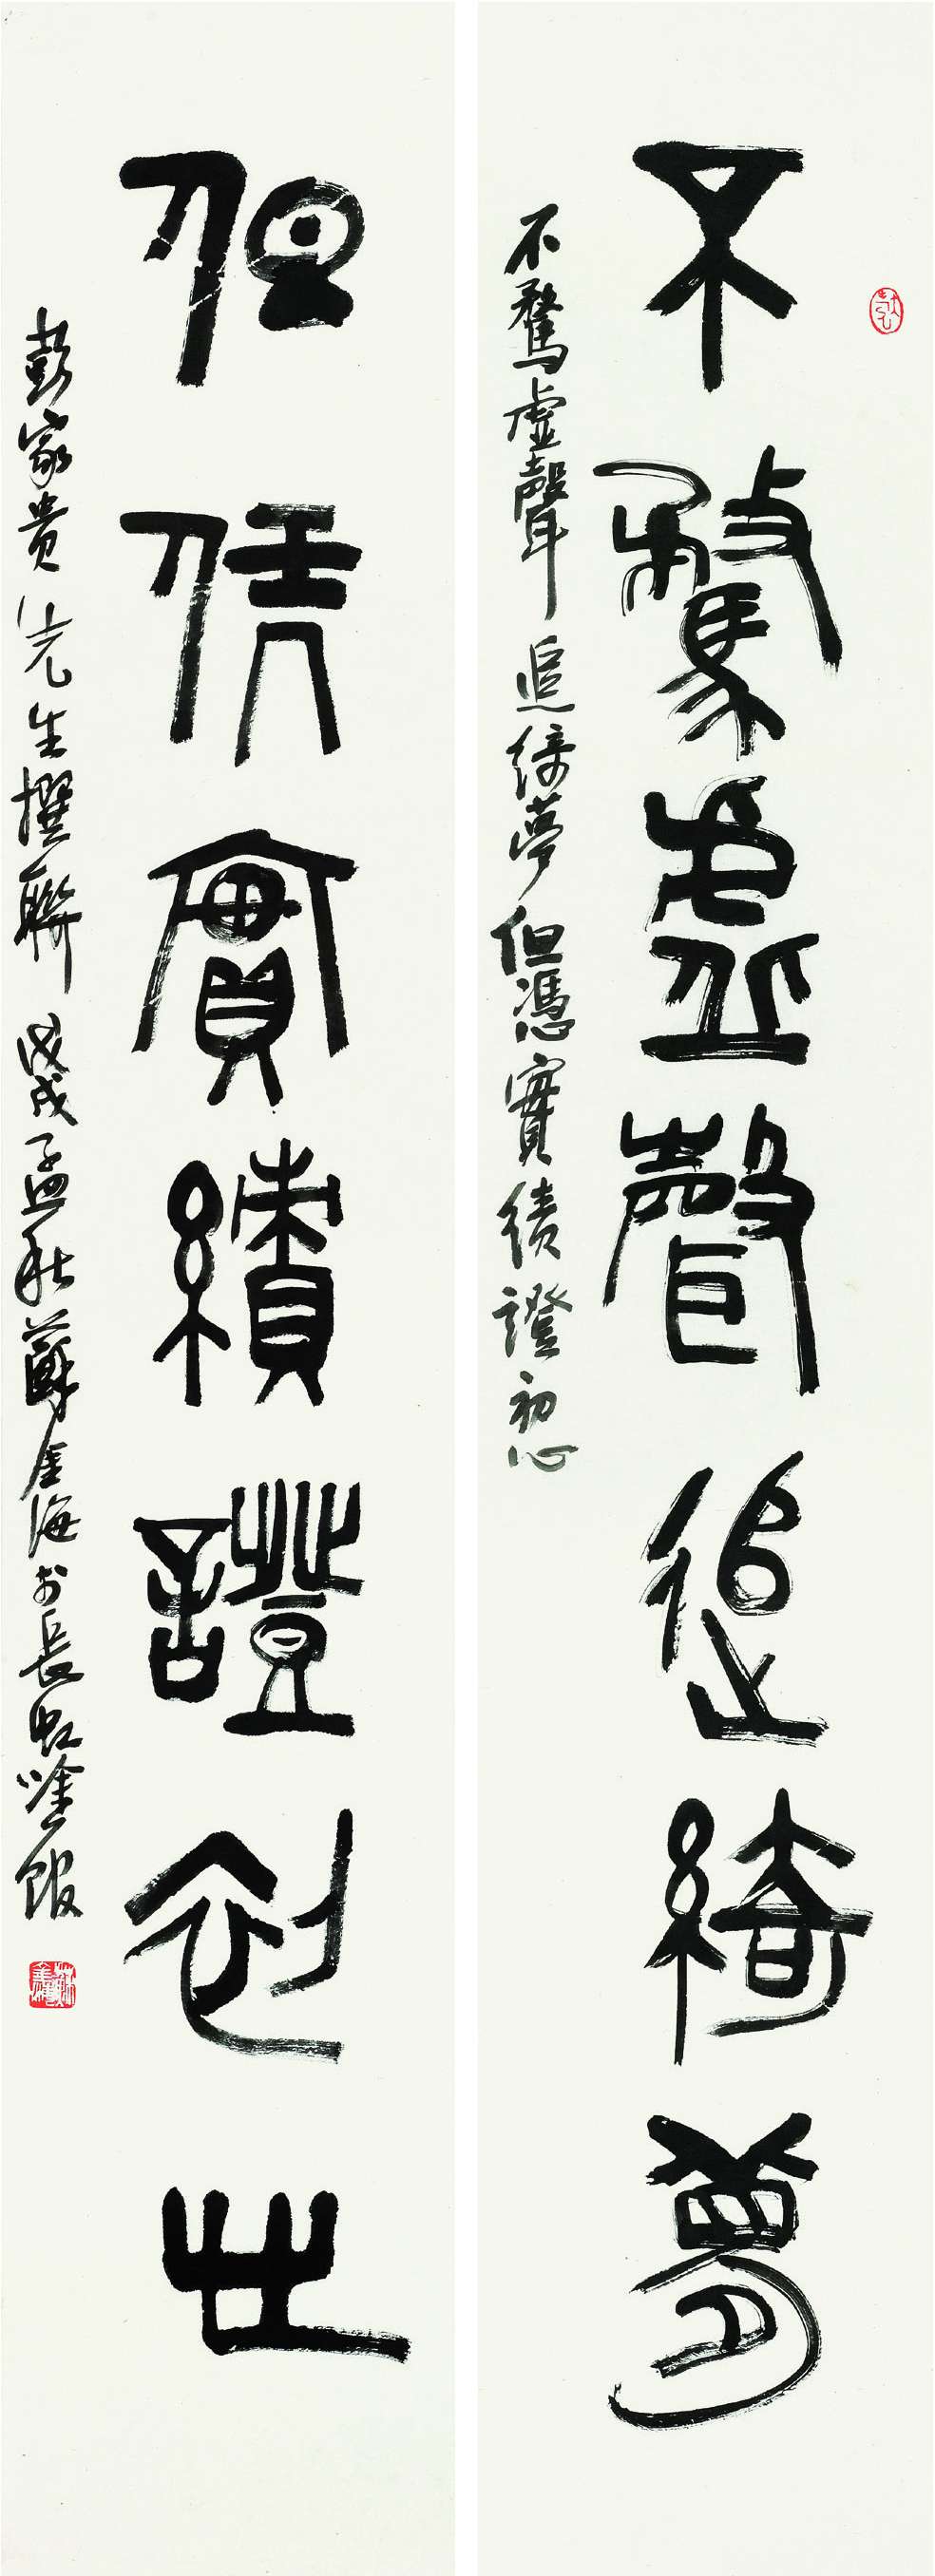 不騖虛聲追綺夢
不騖虛聲追綺夢但憑實績證初心
但凭實績證初心
彭家貴先生撰聯 戊戌孟秋蘇金海於長虹唫館